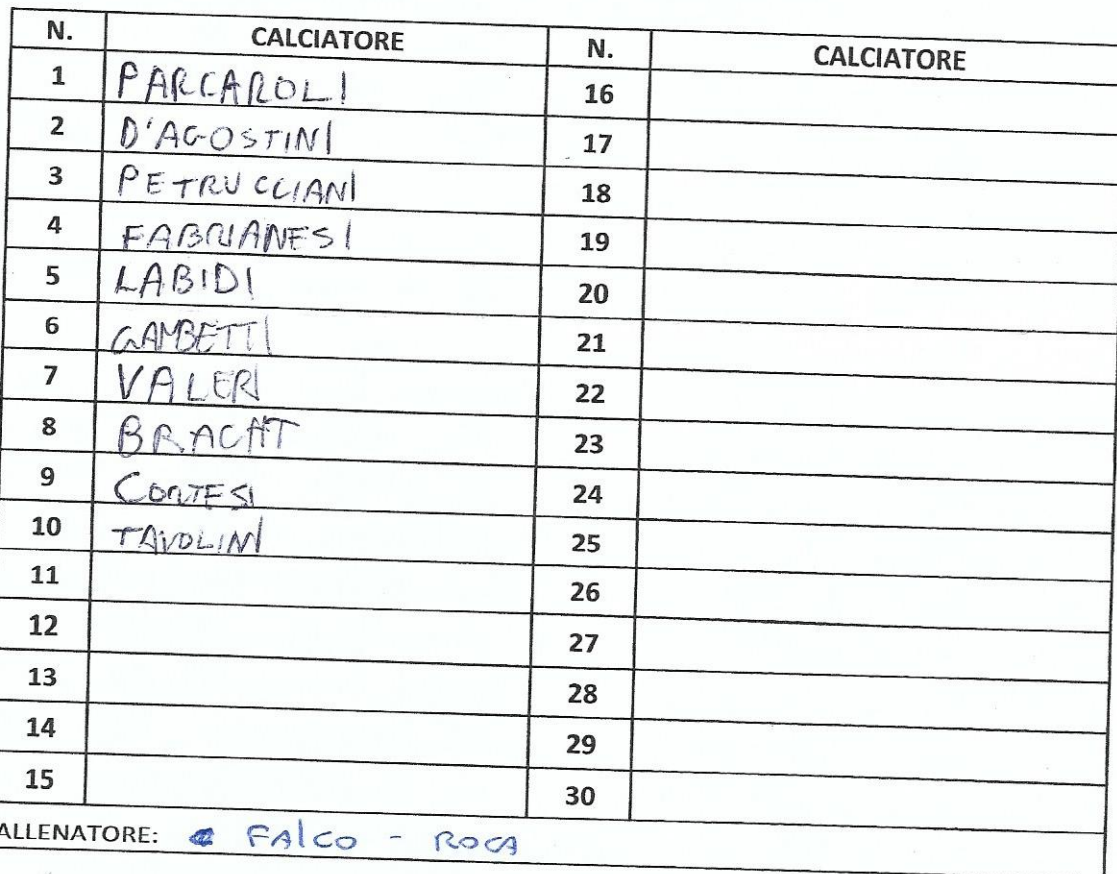 N. CALCIATORE N. CALCIATORE
1 PARCAROLI 16
2 D'AGOSTINI 17
3 PETRUCCIANI 18
4 FABRIANESI 19
5 LABIDI 20
6 GAMBETTI 21
7 VALERI 22
8 BRACHT 23
9 CORTESI 24
10 TAVOLINI 25
11 26
12 27
13 28
14 29
15 30
ALLENATORE: FALCO - ROCA